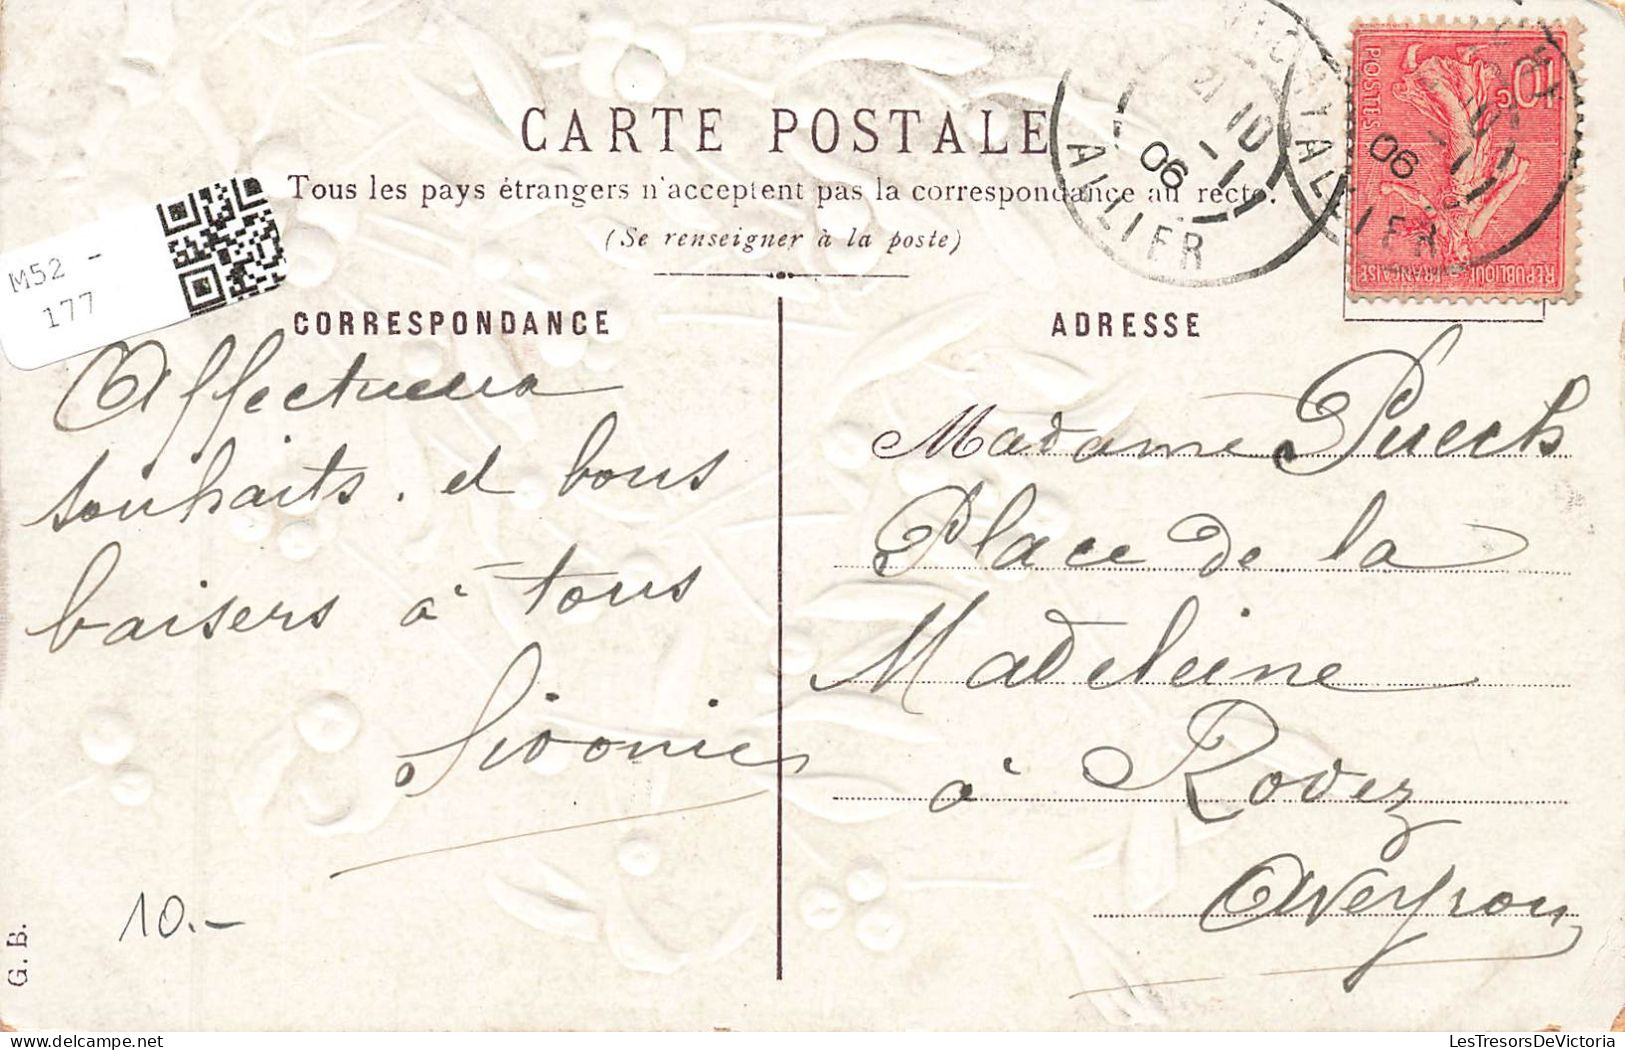 CARTE POSTALE
Tous les pays étrangers n'acceptent pas la correspondance au recto.
(Se renseigner à la poste)
M52 -
177
CORRESPONDANCE
Affectueux
souhaits. et bons
baisers à tous
G. B.
10.-
ADRESSE
Madame Puech
Place de la
Madeleine
à Rodez
Aveyron
21 10
1 - 1
06
ALLIER
ALLIER
06
POSTES
10c
REPUBLIQUE FRANÇAISE
LesTresorsDeVictoria